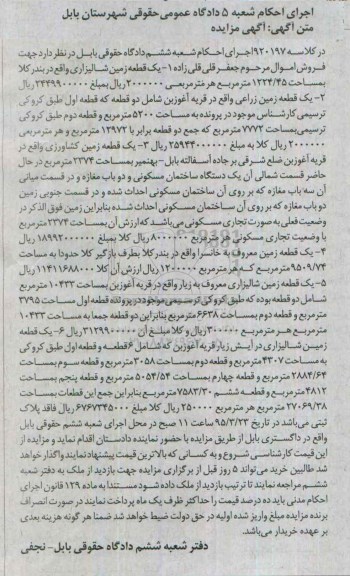 اجرای احکام شعبه ۵ دادگاه عمومی حقوقی شهرستان بابل
متن آگهی: آگهی مزایده
در کلاسه ۹۲۰۱۹۷ اجرای احکام شعبه ششم دادگاه حقوقی بابل در نظر دارد جهت
فروش اموال مرحوم جعفر قلی قلی زاده ۱- یک قطعه زمین شالیزاری واقع در بندر کلا
بمساحت ۱۲۲۴/۴۵ مترمربع هر مترمربعی ۲۰۰۰۰۰۰ ریال بمبلغ ۲۴۴۹۹۰۰۰۰۰ ریال
۲- یک قطعه زمین زراعی واقع در قریه آغوزبن شامل دو قطعه که قطعه اول طبق کروکی
ترسیمی کارشناس موجود در پرونده به مساحت ۵۲۰۰ مترمربع و قطعه دوم طبق کروکی
ترسیمی بمساحت ۷۷۷۲ مترمربع که جمع دو قطعه برابر با ۱۲۹۷۲ مترمربع و هر مترمربعی
۲۰۰۰۰۰۰ ریال کلا به مبلغ ۲۵۹۴۴۰۰۰۰۰۰ ریال ۳- یک قطعه زمین کشاورزی واقع در
قریه آغوزبن ضلع شرقی بر جاده آسفالته بابل - بهنمیر بمساحت ۲۳۷۴ مترمربع در حال
حاضر قسمت شمالی آن یک دستگاه ساختمان مسکونی و دو باب مغازه و در قسمت میانی
آن سه باب مغازه که بر روی آن ساختمان مسکونی احداث شده و در قسمت جنوبی زمین
دو باب مغازه که بر روی آن ساختمان مسکونی احداث شده بنابراین زمین فوق الذکر در
وضعیت فعلی به صورت تجاری مسکونی می باشد که ارزش آن بمساحت ۲۳۷۴ مترمربع
با وضعیت تجاری مسکونی هر مترمربع ۸۰۰۰۰۰۰ ریال کلا بمبلغ ۱۸۹۹۲۰۰۰۰۰۰ ریال
۴- یک قطعه زمین معروف به خانسرا واقع در بندر کلا بطرف بازگیر کلا حدودا به مساحت
۹۵۰۹/۷۴ مترمربع کـه هر مترمربع ۱۲۰۰۰۰۰ ریال ارزش آن کلا ۱۱۴۱۱۶۸۸۰۰۰ ریال
۵- یک قطعه زمین شالیزاری معروف به زیار واقع در قریه آغوزبن بمساحت ۱۰۴۳۳ مترمربع
شامل دو قطعه بوده که طبق کروکی ترسیمی موجود در پرونده قطعه اول مساحت ۳۷۹۵
مترمربع و قطعه دوم بمساحت ۶۶۳۸ مترمربع بنابراین دو قطعه جمعا به مساحت ۱۰۴۳۳
مترمربع هـر مترمربع ۳۰۰۰۰۰ ریال و کلا مبلـغ آن ۳۱۲۹۹۰۰۰۰۰ ریال ۶- یک قطعه
زمین شالیزاری در آیش زیار قریه آغوزبن که شامل ۶ قطعه و قطعه اول طبق کروکی
به مساحت ۴۳۰۷ مترمربع و قطعه دوم بمساحت ۳۰۵۸ مترمربع و قطعه سوم بمساحت
۲۸۸۴/۶۴ مترمربع و قطعه چهارم بمساحت ۵۰۵۴/۵۴ مترمربع و قطعه پنجم بمساحت
۴۸۱۲ مترمربع و قطعه ششم ۷۵۸۳/۳۰ مترمربع بنابراین جمع این قطعات بمساحت
۲۷۰۶۹/۳۸ مترمربع هر مترمربع ۲۵۰۰۰۰ ریال کلا مبلغ ۶۷۶۷۳۴۵۰۰۰ ریال فاقد پلاک
ثبتی می باشد در تاریخ ۹۵/۳/۲۳ ساعت ۱۱ صبح در محل اجرای شعبه ششم حقوقی بابل
واقع در دادگستری بابل از طریق مزایده با حضور نماینده دادستان اقدام نماید و مزایده از
این قیمت کارشناسی شروع و به کسانی که بالاترین قیمت پیشنهاد نمایند واگذار خواهد
شد طالبین خرید می تواند ۵ روز قبل از برگزاری مزایده جهت بازدید از ملک به دفتر شعبه
ششم مراجعه نمایند تا ترتیب بازدید از ملک داده شود مستندا به ماده ۱۲۹ قانون اجرای
احکام مدنی باید ده درصد قیمت را حداکثر ظرف یک ماه پرداخت نمایند در صورت انصراف
برنده مزایده مبلغ واریز شده اولیه در حق دولت ضبط خواهد شد ضمنا هر گونه هزینه بعدی
بر عهده خریدار می باشد.
دفتر شعبه ششم دادگاه حقوقی بابل - نجفی